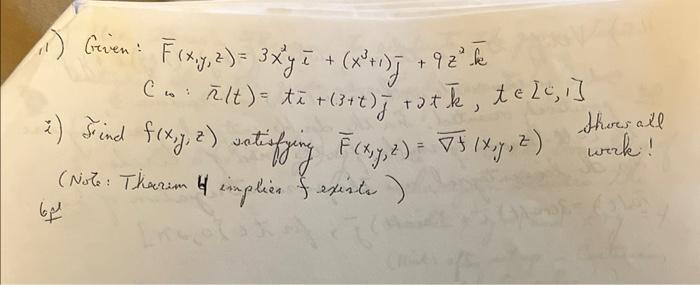 1) Given: F̄(x,y,z) = 3x²y ī + (x³+1) j̄ + 9z² k̄
C is: r̄(t) = t ī + (3+t) j̄ + 2t k̄, t ∈ [0,1]
i) Find f(x,y,z) satisfying F̄(x,y,z) = ∇̄f(x,y,z) Show all work!
(Note: Theorem 4 implies f exists)
6pt